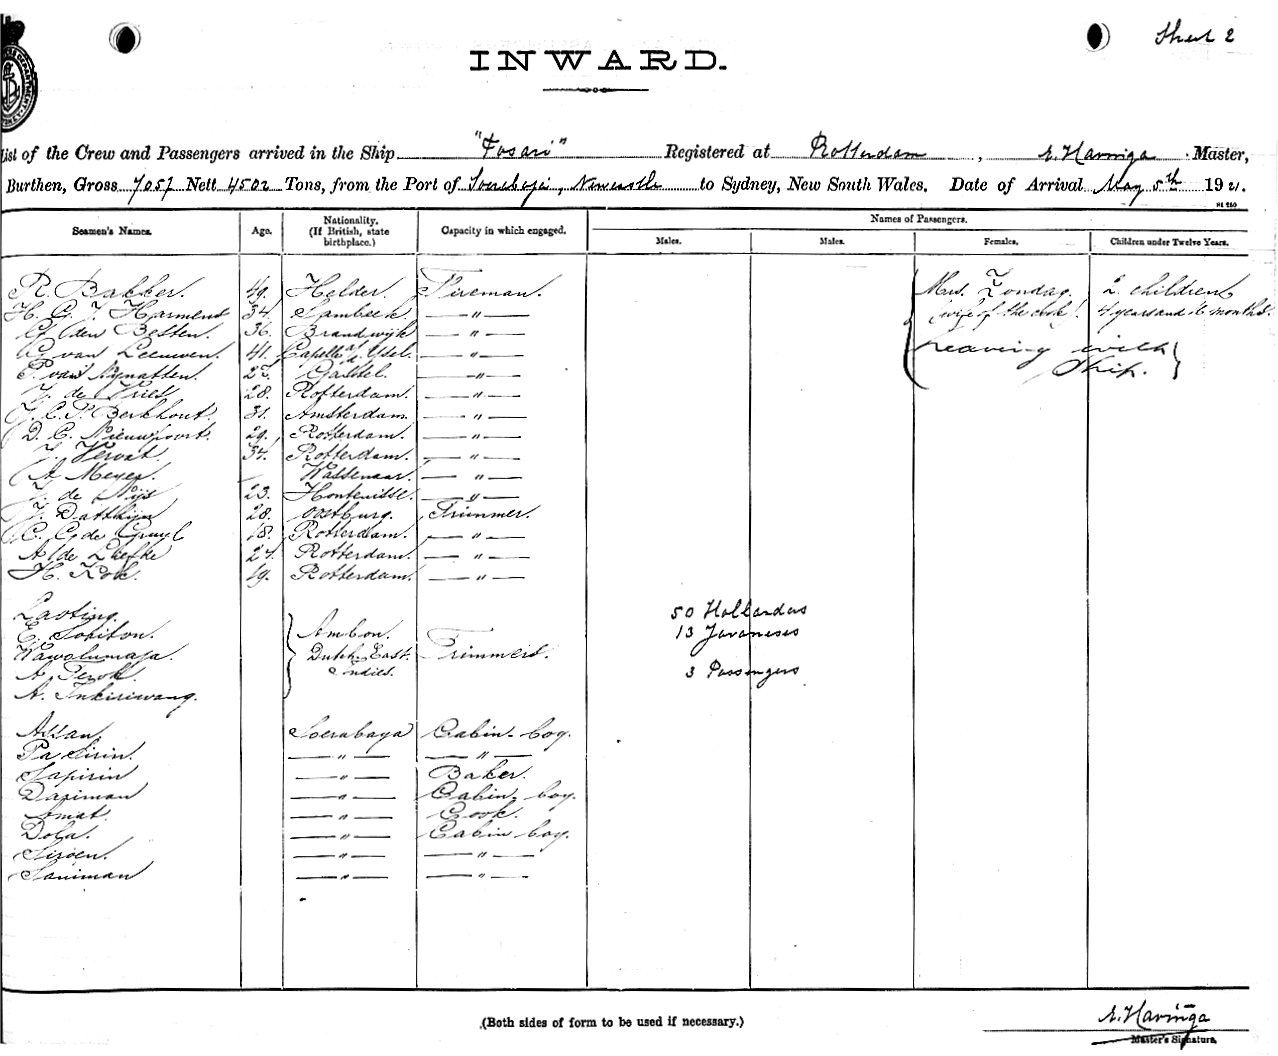 Sheet 2
INWARD.
List of the Crew and Passengers arrived in the Ship "Tosari" Registered at Rotterdam, A. Haringa Master,
Burthen, Gross 7057 Nett 4502 Tons, from the Port of Soerabaja, Newcastle to Sydney, New South Wales. Date of Arrival May 5th 1921.
Seamen's Names. Age. Nationality. (If British, state birthplace.) Capacity in which engaged. Names of Passengers.
Males. Males. Females. Children under Twelve Years.
R. Bakker. 49. Helder. Fireman. Mrs. Zondag. 2 children
H. G. J. Harmens 34. Lambeek — " — (wife of the cook) 4 years and 6 months.
den Betten. 36. Brandwijk — " —
G. van Leeuwen. 41. Capelle a/d Ysel. — " — leaving with
P. van Nynatten. Gastel. — " — Ship.
J. de Vries 28. Rotterdam. — " —
J. C. P. Berkhout. 31. Amsterdam. — " —
D. C. Nieuwpoort. 29. Rotterdam. — " —
J. Vervat. 34. Rotterdam. — " —
A. Meyer. Wassenaar. — " —
J. de Nijs 23. Hontenisse. — " —
J. Datthijn 28. Oostburg. Trimmer.
C. C. de Gruyl 18. Rotterdam. — " —
A. de Liefke Rotterdam. — " —
H. Kok. 19. Rotterdam. — " —
Lasting. 50 Hollanders
E. Sohiton. Ambon. 13 Javaneses
Wawolumaja. Dutch East Trimmers.
A. Perok. Indies. 3 Passengers
A. Inkiriwang.
Assan. Soerabaya Cabin-boy.
Pa Sirin. — " — — " —
Sapirin — " — Baker.
Dasiman — " — Cabin-boy.
Amat. — " — Cook.
Dola. — " — Cabin boy.
Siroen. — " — — " —
Saniman — " — — " —
(Both sides of form to be used if necessary.)
A. Haringa
Master's Signature.